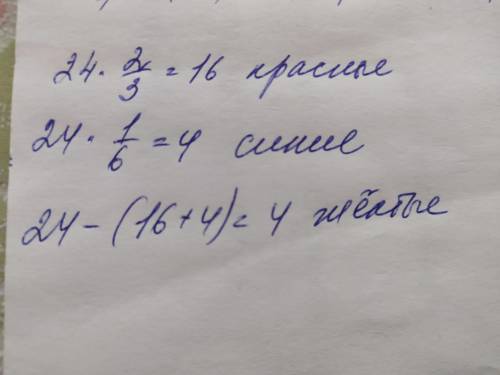 24 · 2/3 = 16 красные
24 · 1/6 = 4 синие
24 – (16+4) = 4 жёлтые